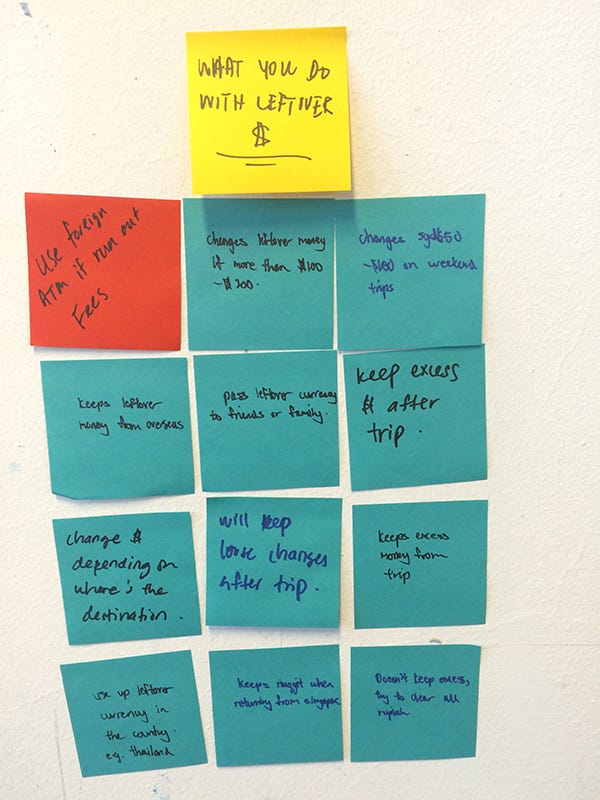 WHAT YOU DO
WITH LEFTIVER
$
Use foreign
ATM if run out
Fees
changes leftover money
if more than $100
-$200.
changes sgd$50
-$100 on weekend
trips
keeps leftover
money from overseas
pass leftover currency
to friends or family.
keep excess
$ after
trip.
change $
depending on
where's the
destination.
will keep
loose changes
after trip.
keeps excess
money from
trip
use up leftover
currency in
the country.
e.g. thailand
keeps ringgit when
returning from
Doesn't keep excess,
try to clear all
rupiah